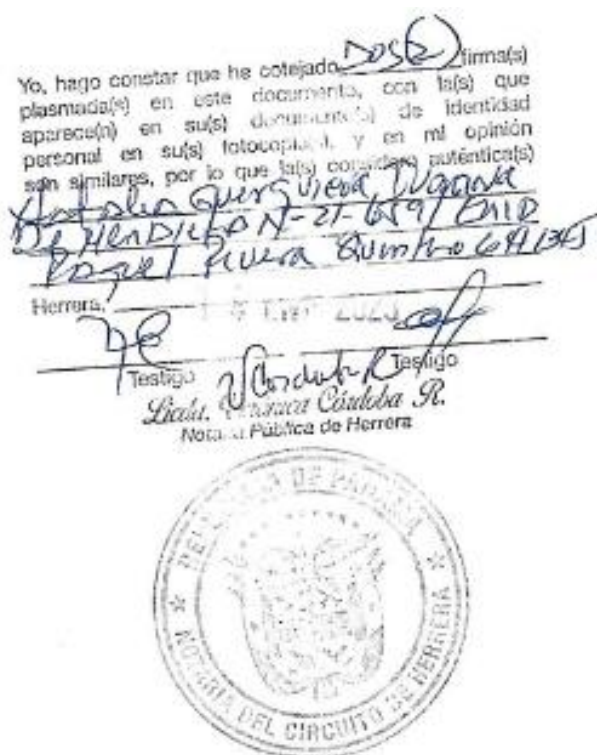 Yo, hago constar que he cotejado DOS(2) firma(s)
plasmada(s) en este documento, con la(s) que
aparece(n) en su(s) documento(s) de identidad
personal en su(s) fotocopia(s), y en mi opinión
son similares, por lo que la(s) considero auténtica(s)
N-21-659
Raquel Rivera Quintero
Herrera,
Testigo Testigo
Licda. Verónica Córdoba R.
Notaria Pública de Herrera
REPUBLICA DE PANAMA
NOTARIA DEL CIRCUITO DE HERRERA